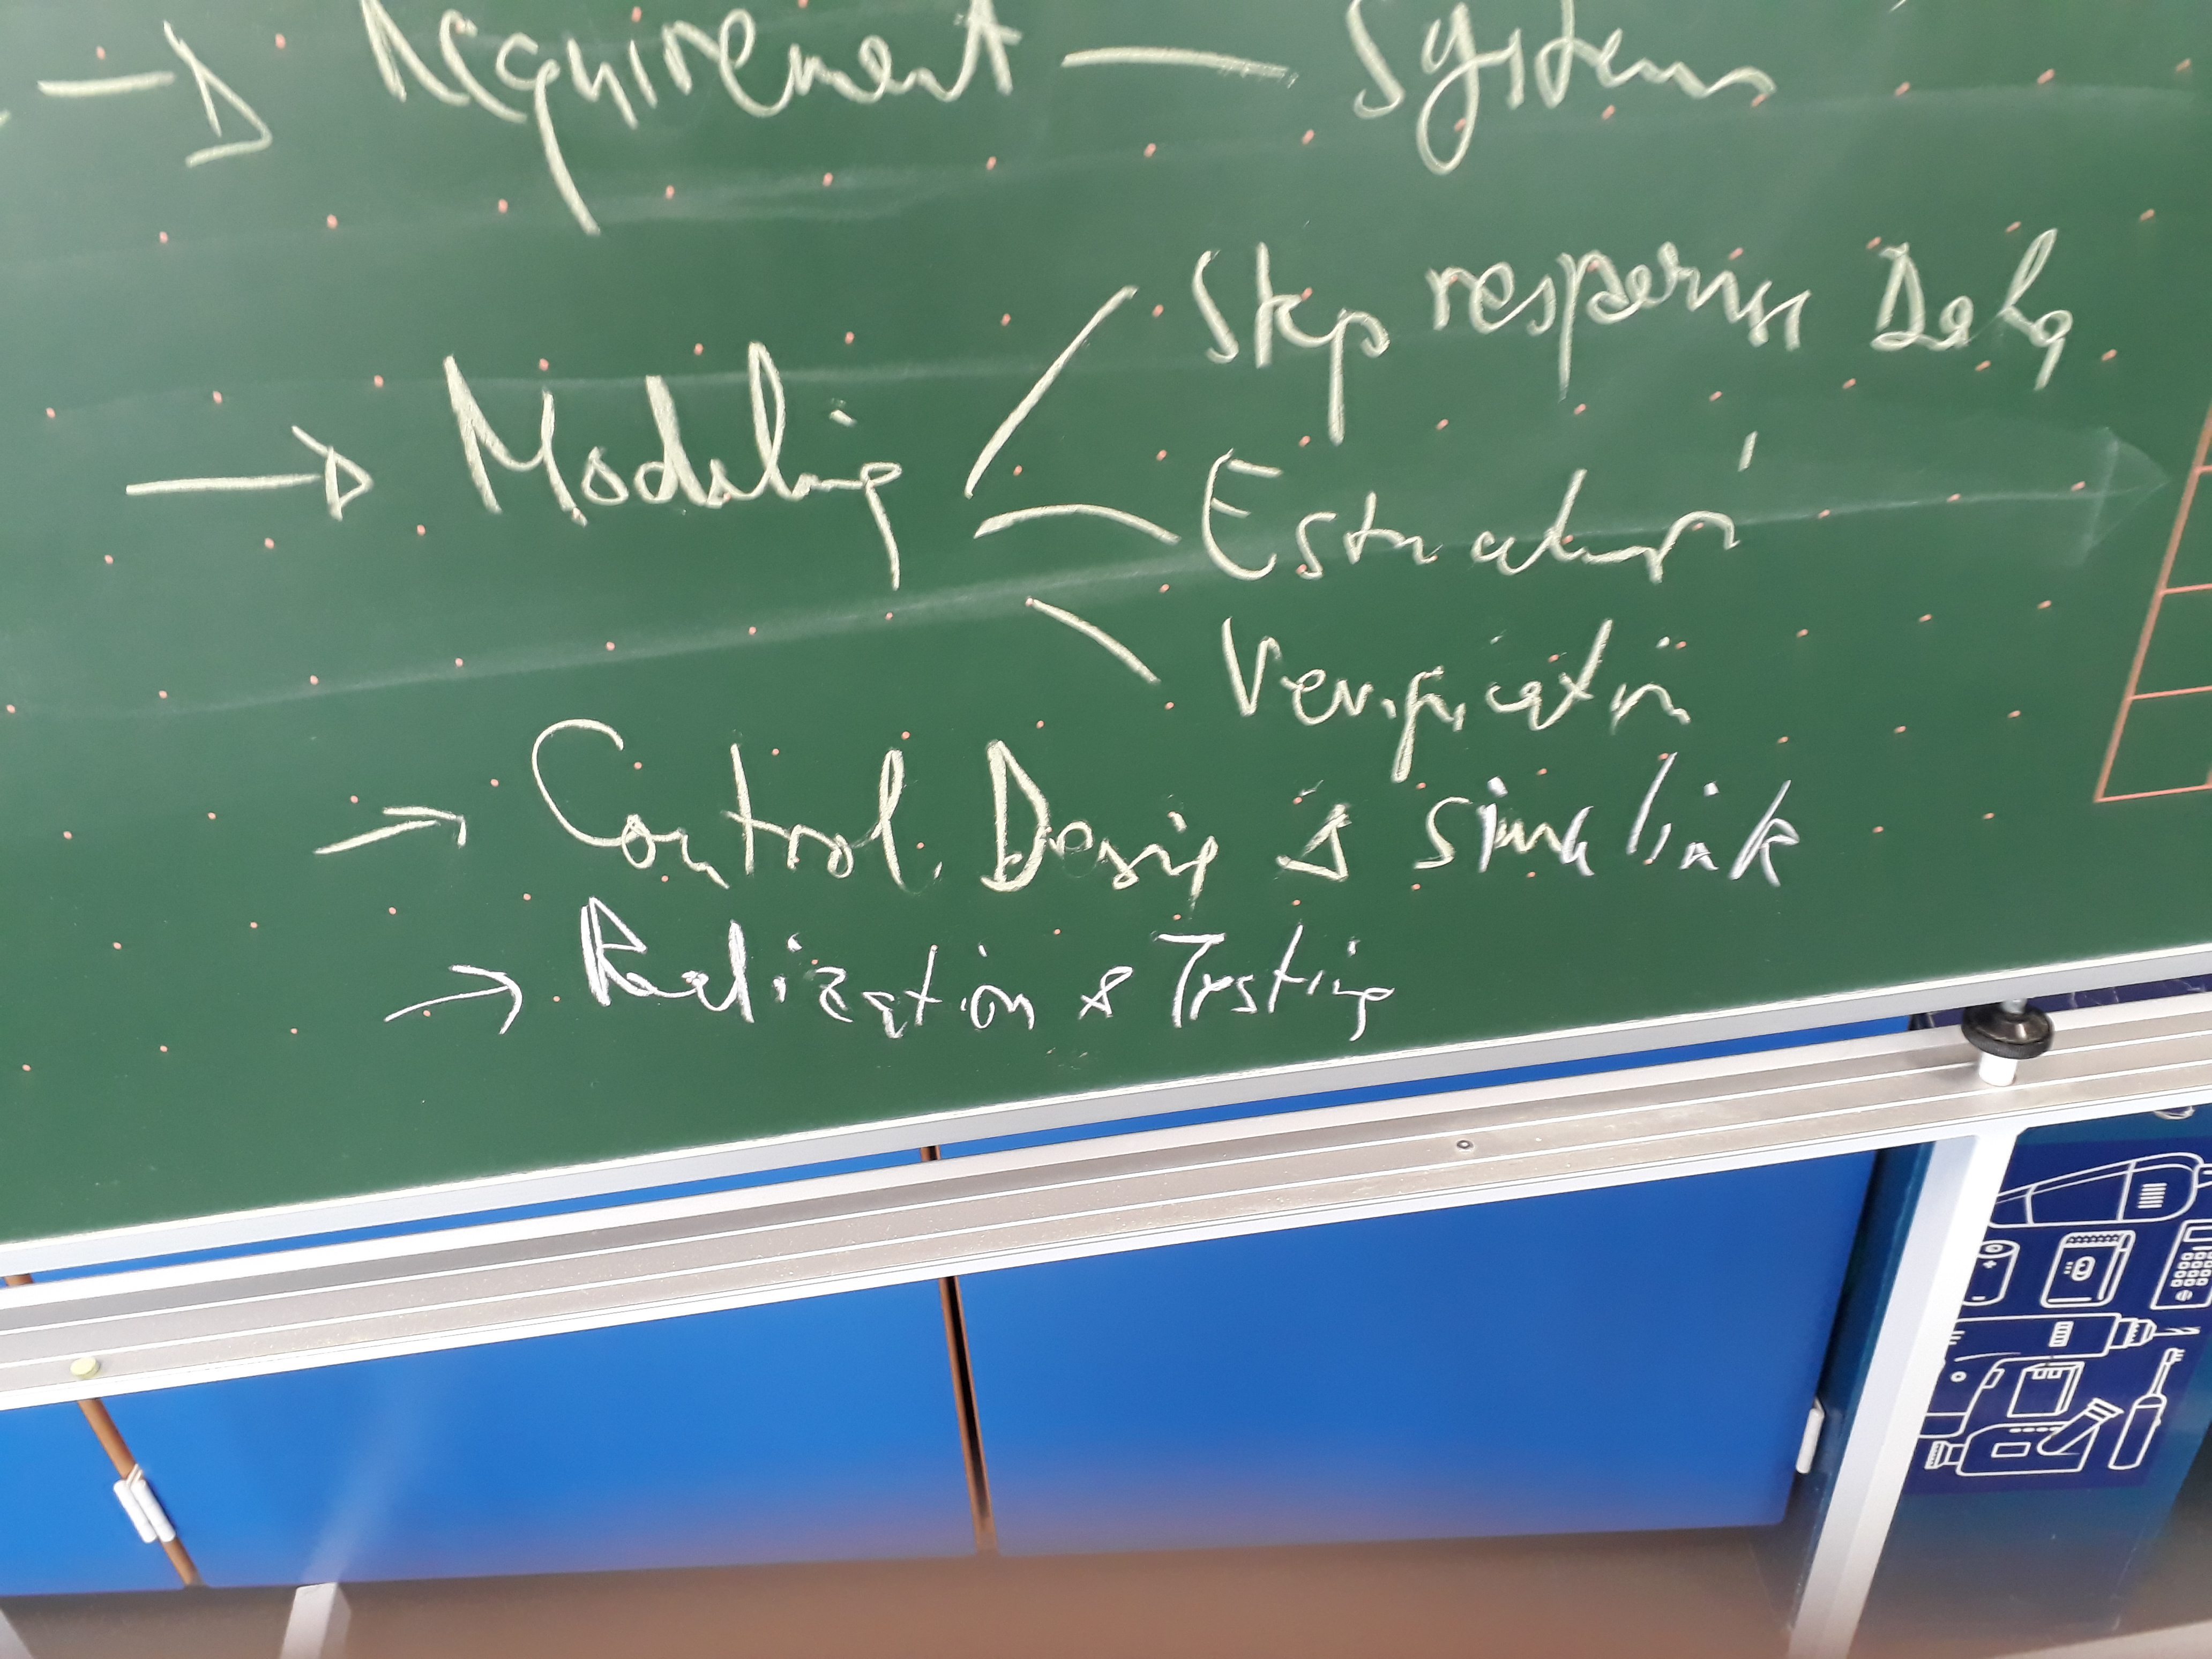 → Requirement — System
Step response Data
→ Modeling
Estimation
Verification
→ Control Design & simulink
→ Realization & Testing